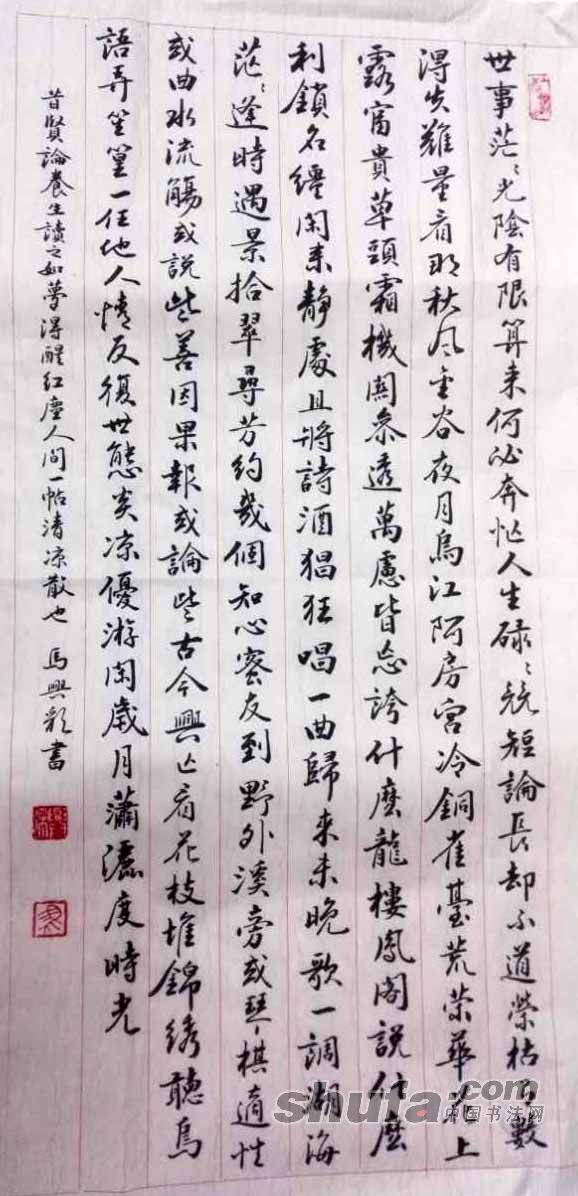 世事茫〻光陰有限算来何必奔忙人生碌〻競短論長却不道榮枯有數
得失難量看那秋风金谷夜月烏江阿房宫冷銅雀臺荒荣華花上
露富貴草頭霜機関参透萬慮皆忘誇什麽龍樓鳳閣說什麽
利鎖名纏閑来靜處且将詩酒猖狂唱一曲歸来未晚歌一調湖海
茫〻逢時遇景拾翠尋芳约幾個知心密友到野外溪旁或琴棋適性
或曲水流觴或説些善因果報或論些古今興亡看花枝堆錦绣聽鳥
語弄笙篁一任他人情反復世態炎凉優游閑歲月瀟灑度時光
昔賢論養生讀之如夢得醒红塵人间一帖清凉散也 馬興彩書
shufa.com
中国书法网